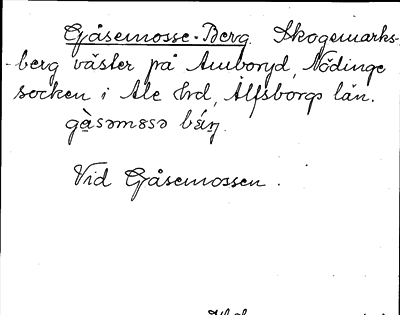 Gåsemosse-Berg. Skogsmarks-
-berg väster på Amboryd, Nödinge
socken i Ale Hrd, Älfsborgs län.
gàsəmɞsə bǽŋ.
Vid Gåsemossen.